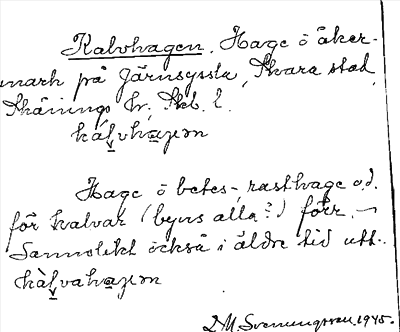 Kalvhagen. Hage o åker-
mark på Järnsyssla, Skara stad,
Skånings hr; Skb. l.
kálvhagen
Hage o betes-, rasthage o.d.
för kalvar (byns alla?) förr. –
Sannolikt också i äldre tid utt.
kàlvahagen
D.M. Svenungsson 1945.